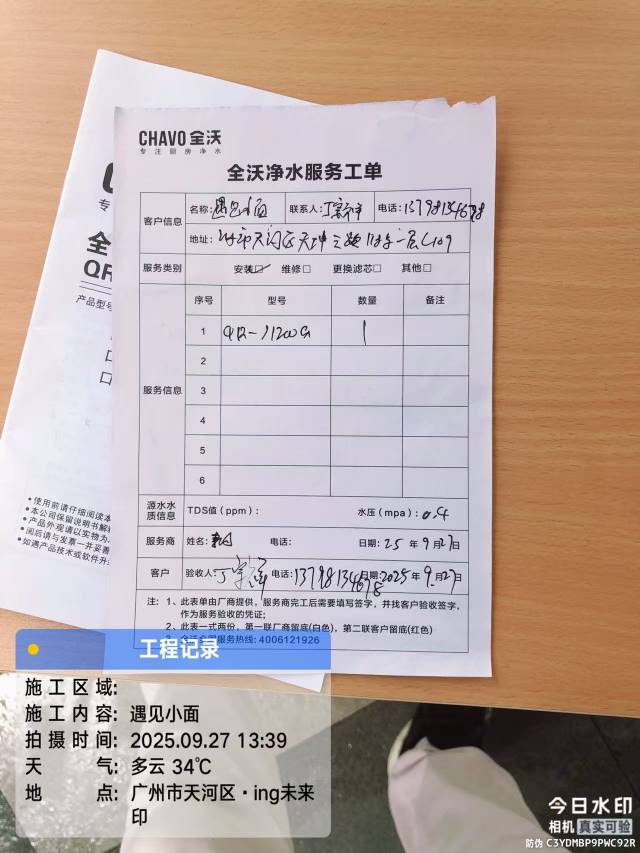 CHAVO 全沃
专注厨房净水
全沃净水服务工单
客户信息
名称: 遇见小面 联系人: 电话: 13798134678
地址:
服务类别 安装☑ 维修□ 更换滤芯□ 其他□
服务信息
序号 型号 数量 备注
1 QR-J1200G 1
2
3
4
5
6
源水水质信息 TDS值(ppm): 水压(mpa): 0.4
服务商 姓名: 电话: 日期: 25年9月27日
客户 验收人: 电话: 13798134678 日期: 2025年9月27日
注: 1、此表单由厂商提供,服务商完工后需要填写签字,并找客户验收签字,
作为服务验收的凭证;
2、此表一式两份,第一联厂商留底(白色),第二联客户留底(红色)
3、全沃全国服务热线: 4006121926
QR
产品型号
• 使用前请仔细阅读本
• 本公司保留说明书解释
• 产品外观请以实物为
• 阅后请与发票一并妥善
• 如遇产品技术或软件升
工程记录
施工区域:
施工内容: 遇见小面
拍摄时间: 2025.09.27 13:39
天气: 多云 34℃
地点: 广州市天河区·ing未来
印
今日水印
相机 真实可验
防伪 C3YDMBP9PWC92R